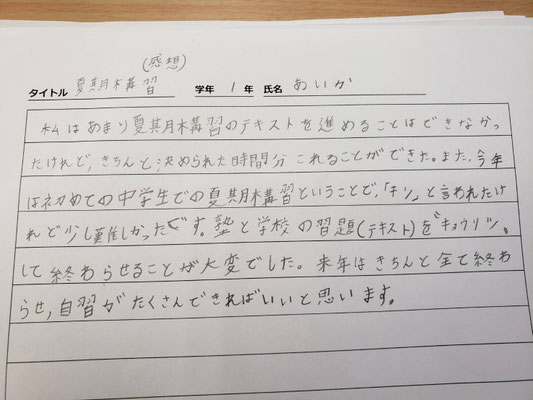 (感想)
タイトル 夏期講習 学年 1 年 氏名 あいか
私はあまり夏期講習のテキストを進めることはできなかっ
たけれど、きちんと決められた時間分これることができた。また、今年
は初めての中学生での夏期講習ということで、「キツ」と言われたけ
れど少し難しかったです。塾と学校の習題(テキスト)を
して終わらせることが大変でした。来年はきちんと全て終わ
らせ、自習がたくさんできればいいと思います。